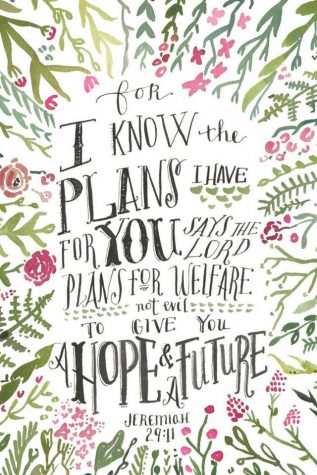 for
I KNOW the
PLANS I HAVE
FOR YOU SAYS THE LORD
PLANS FOR WELFARE
not evil
TO GIVE YOU
A HOPE & A FUTURE
JEREMIAH
29:11